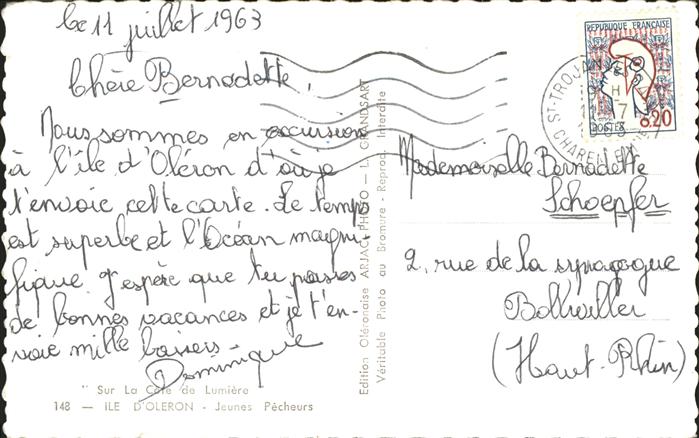 le 11 juillet 1963
Chère Bernadette,
Nous sommes en excursion
à l'île d'Oléron d'où je
t'envoie cette carte. Le temps
est superbe et l'Océan magni-
fique. J'espère que tu passes
de bonnes vacances et je t'en-
voie mille baisers.
Dominique
" Sur La Côte de Lumière
148 — ILE D'OLERON - Jeunes Pêcheurs
Edition Oléronaise ARJAC-PHOTO — LE GRANDSART
Véritable Photo au Bromure - Reprod. Interdite
REPUBLIQUE FRANÇAISE
0,20
POSTES
ST-TROJAN
H
7
Mademoiselle Bernadette
Schoepfer
2, rue de la synagogue
Bollwiller
(Haut-Rhin)